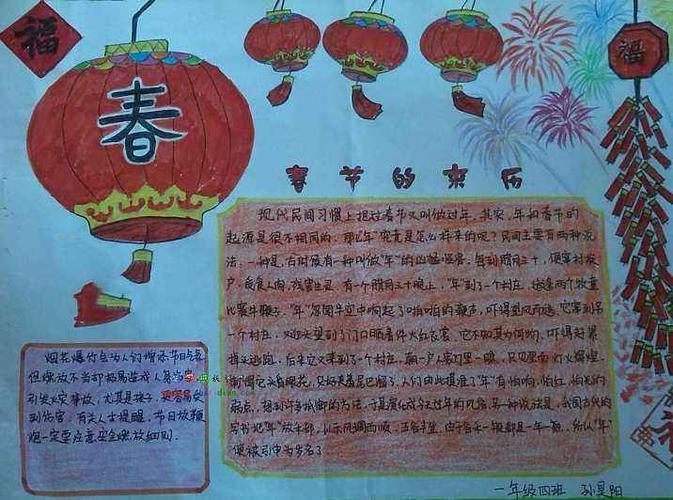 福
春
福
春节的来历
现代民间习惯上把过春节又叫做过年。其实,年和春节的
起源是很不相同的。那么"年"究竟是怎么样来的呢?民间主要有两种说
法:一种是,古时候有一种叫做"年"的凶猛怪兽,每到腊月三十,便窜村挨
户,觅食人肉,残害生灵。有一个腊月三十晚上,"年"到了一个村庄,适逢两个牧童
比赛牛鞭子。"年"忽闻半空中响起了啪啪的鞭声,吓得望风而逃。它窜到另
一个村庄,又迎头望到了门口晒着件大红衣裳,它不知其为何物,吓得赶紧
掉头逃跑。后来它又来到了一个村庄,朝一户人家门里一瞧,只见里面灯火辉煌,
刺得它头昏眼花,只好夹着尾巴溜了。人们由此摸准了"年"有怕响,怕红,怕光的
弱点,想到许多抵御的方法,于是演化成今天过年的风俗。另一种说法是,我国古代的
字书把"年"放禾部,以示风调雨顺,五谷丰登。由于谷禾一般都是一年一熟。所以"年"
便被引申为岁名了
烟花爆竹会为人们增添节日气氛
但燃放不当却极易造成人身伤害
引发火灾事故,尤其是孩子,更容易受
到伤害。有关人士提醒,节日放鞭
炮一定要注意安全燃放细则。
一年级四班 孙昊阳